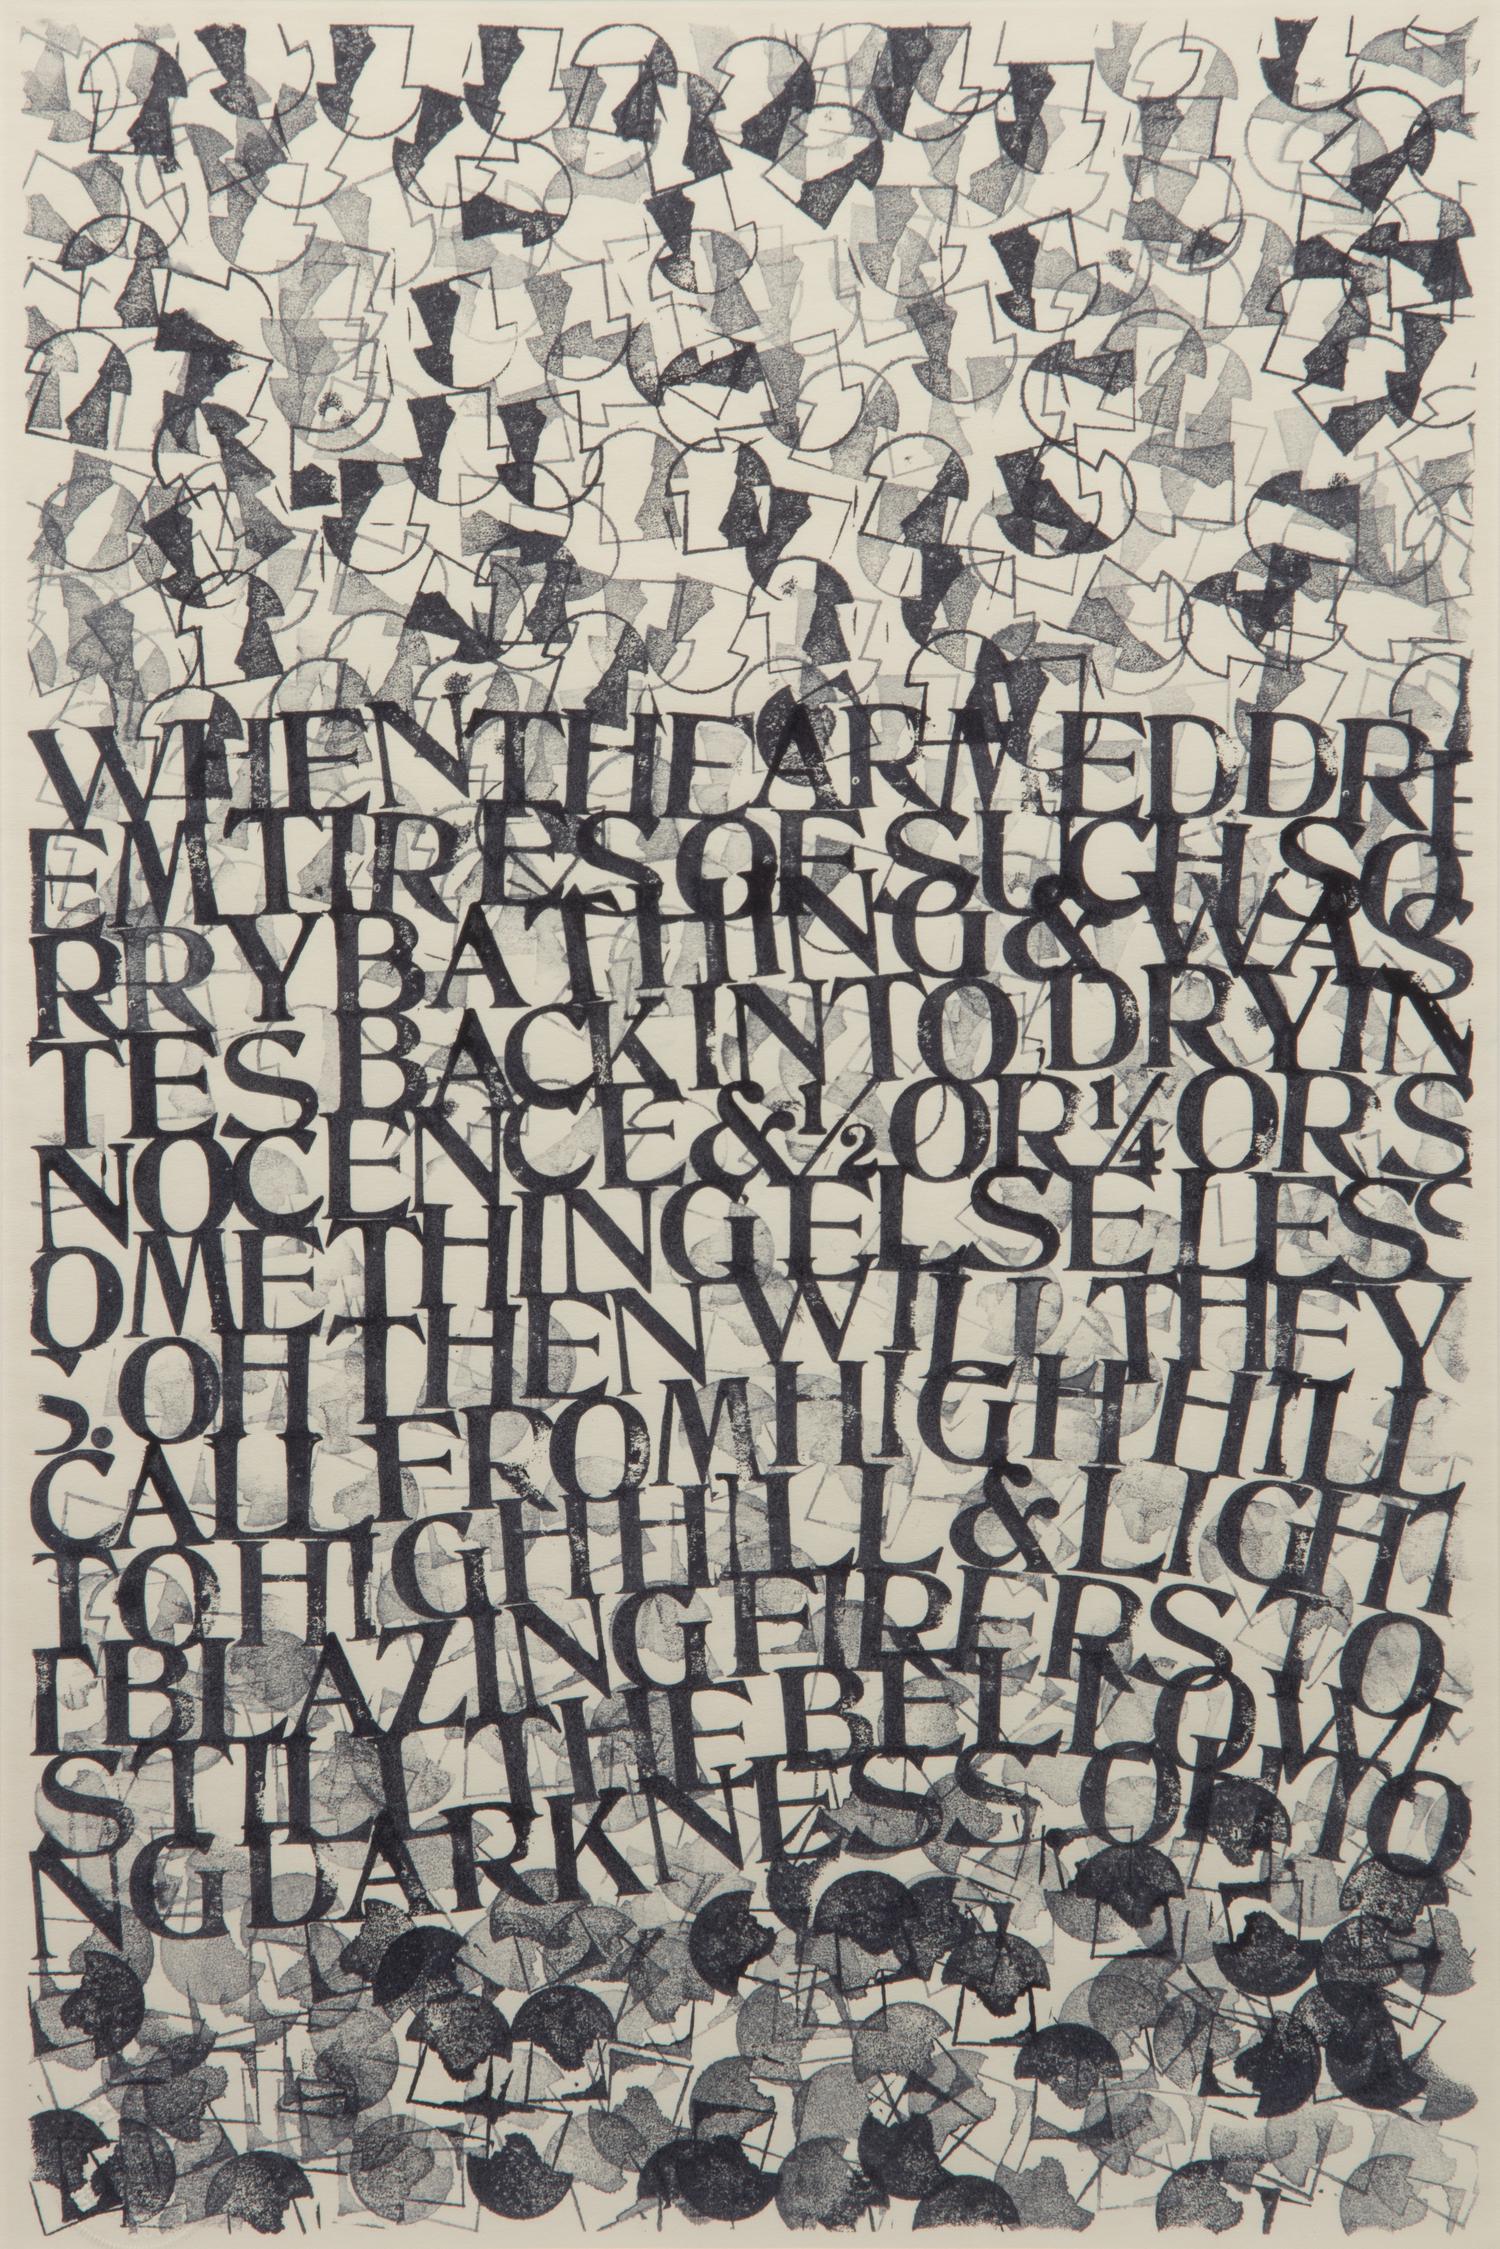 WHENTHEARMEDDRE
EMTIRESOFSUCHSO
RRYBATHING&WAS
TESBACKINTODRYIN
NOCENCE&½OR¼ORS
OMETHINGELSELESS
?OHTHENWILLTHEY
CALLFROMHIGHHILL
TOHIGHHILL&LIGHT
BLAZINGFIRERSTO
STILLTHEBELLOWI
NGDARKNESSOHTO